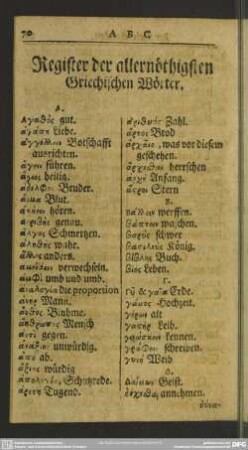 70 A B C
Register der allernöthigsten
Griechischen Wörter.
A.
Αγαθὸς gut.
ἀγάπη Liebe.
ἀγγέλλω Botschafft
ausrichten.
ἄγω führen.
ἅγιος heilig.
ἀδελφὸς Bruder.
αἷμα Blut.
ἀκούω hören.
genau.
ἄλγος Schmertzen.
ἀληθὴς wahr.
ἄλλος anders.
verwechseln.
ἀμφὶ umb und umb.
ἀναλογία die proportion
ἀνὴρ Mann.
ἄνθος Blühme.
ἄνθρωπος Mensch
ἀντὶ gegen.
ἀνάξιος unwürdig.
ἀπὸ ab.
ἄξιος würdig
ἀπολογία, Schutzrede.
ἀρετὴ Tugend.
ἀριθμὸς Zahl.
ἄρτος Brod
ἀρχαῖος, was vor diesem
geschehen.
herrschen
ἀρχὴ Anfang.
Stern
B.
βάλλω werffen.
wachen.
βαρὺς schwer
βασιλεὺς König.
βίβλος Buch.
βίος Leben.
Γ.
γῆ & γαῖα Erde.
γάμος Hochzeit.
γέρων alt
γαστὴρ Leib.
kennen.
γράφω schreiben.
γυνὴ Weib
Δ.
Δαίμων Geist.
annehmen.